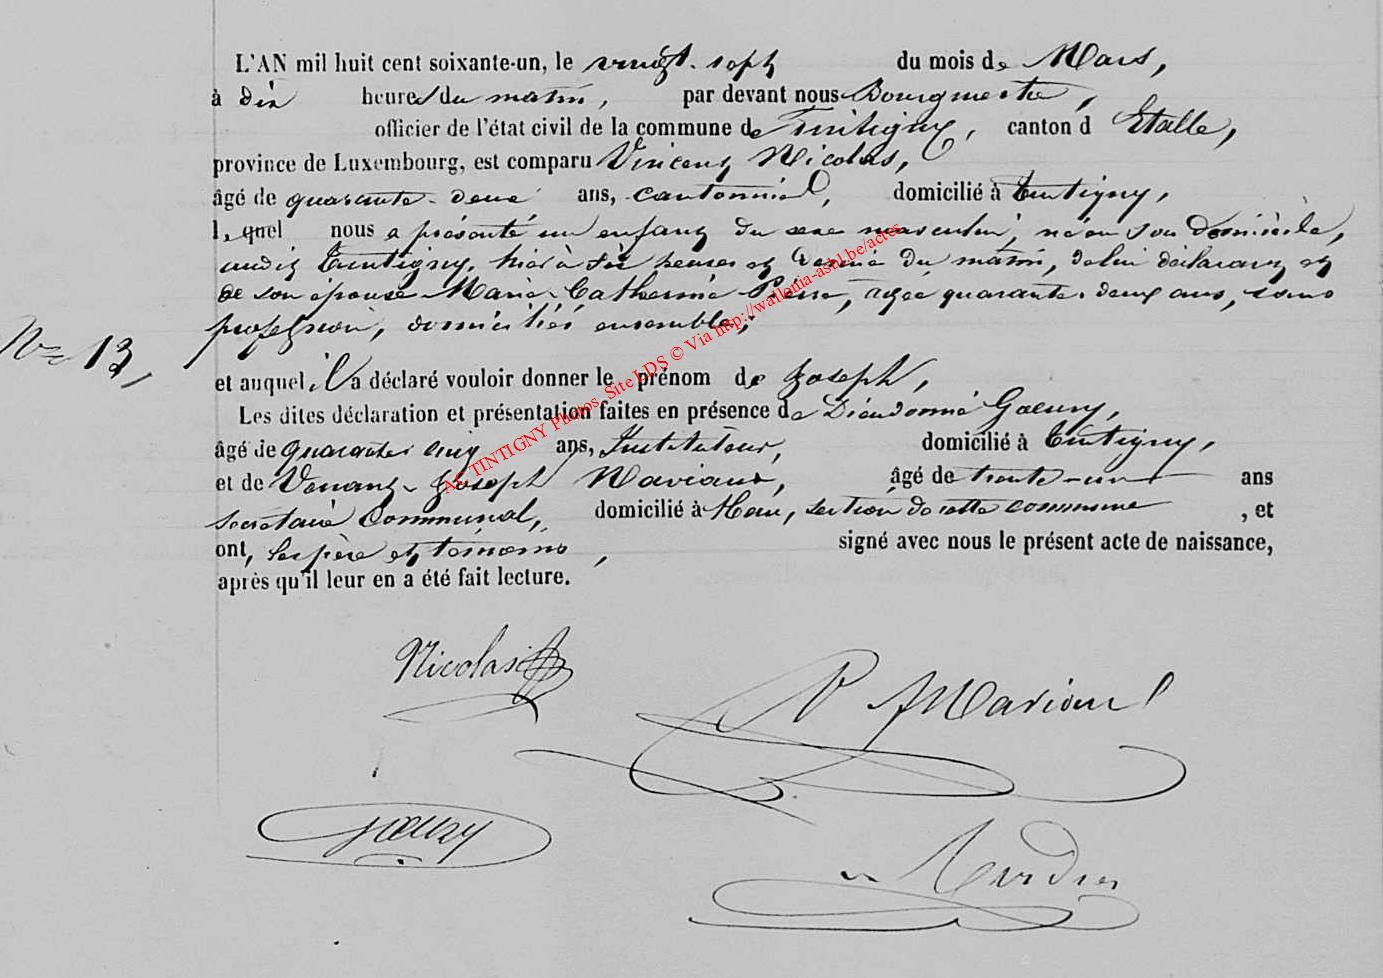 L'AN mil huit cent soixante-un, le vingt-sept du mois de Mars,
à dix heures du matin, par devant nous Bourgmestre,
officier de l'état civil de la commune de Tintigny, canton d Etalle,
province de Luxembourg, est comparu Vincent Nicolas,
âgé de quarante-deux ans, cantonnier, domicilié à Tintigny,
lequel nous a présenté un enfant du sexe masculin, né en son domicile,
audit Tintigny, hier à six heures et demie du matin, de lui déclarant et
de son épouse Marie-Catherine, agée quarante-deux ans, sans
profession, domiciliés ensemble,
N° 13,
et auquel il a déclaré vouloir donner le prénom de Joseph,
Les dites déclaration et présentation faites en présence de Dieudonné Goeury,
âgé de quarante cinq ans, Instituteur, domicilié à Tintigny,
et de Joseph, âgé de trente-un ans
secrétaire Communal, domicilié à, section de cette commune, et
ont, les père et témoins, signé avec nous le présent acte de naissance,
après qu'il leur en a été fait lecture.
AC TINTIGNY Photos, Site LDS © Via http://wallonia-asbl.be/actes
Nicolas
Goeury